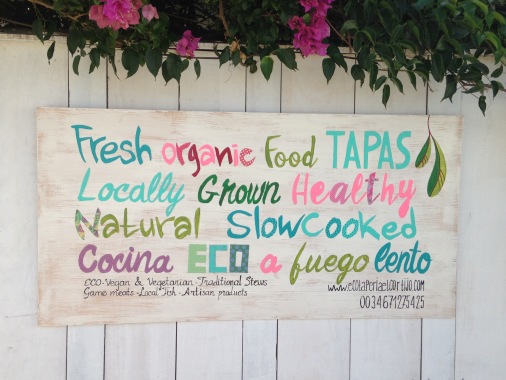 Fresh organic Food TAPAS
Locally Grown Healthy
Natural SlowCooked
Cocina ECO a fuego lento
ECO-Vegan & Vegetarian-Traditional Stews
Game meats-Local Fish-Artisan products
0034671275425